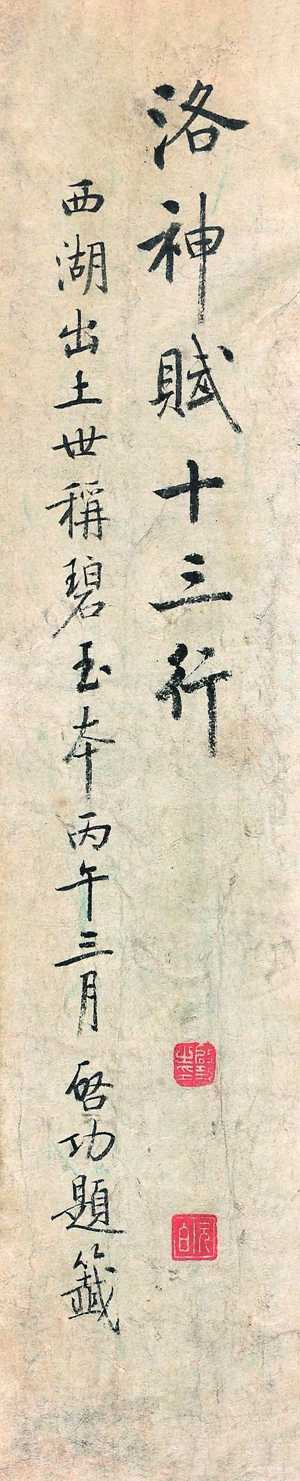 洛神賦十三行
西湖出土世稱碧玉本丙午三月啓功題籤
元白